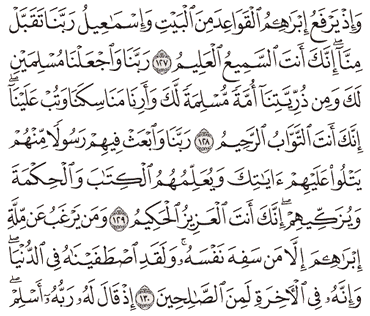 وَإِذۡ يَرۡفَعُ إِبۡرَٰهِـۧمُ ٱلۡقَوَاعِدَ مِنَ ٱلۡبَيۡتِ وَإِسۡمَٰعِيلُ رَبَّنَا تَقَبَّلۡ
مِنَّآۖ إِنَّكَ أَنتَ ٱلسَّمِيعُ ٱلۡعَلِيمُ ١٢٧ رَبَّنَا وَٱجۡعَلۡنَا مُسۡلِمَيۡنِ
لَكَ وَمِن ذُرِّيَّتِنَآ أُمَّةٗ مُّسۡلِمَةٗ لَّكَ وَأَرِنَا مَنَاسِكَنَا وَتُبۡ عَلَيۡنَآۖ
إِنَّكَ أَنتَ ٱلتَّوَّابُ ٱلرَّحِيمُ ١٢٨ رَبَّنَا وَٱبۡعَثۡ فِيهِمۡ رَسُولٗا مِّنۡهُمۡ
يَتۡلُواْ عَلَيۡهِمۡ ءَايَٰتِكَ وَيُعَلِّمُهُمُ ٱلۡكِتَٰبَ وَٱلۡحِكۡمَةَ
وَيُزَكِّيهِمۡۖ إِنَّكَ أَنتَ ٱلۡعَزِيزُ ٱلۡحَكِيمُ ١٢٩ وَمَن يَرۡغَبُ عَن مِّلَّةِ
إِبۡرَٰهِـۧمَ إِلَّا مَن سَفِهَ نَفۡسَهُۥۚ وَلَقَدِ ٱصۡطَفَيۡنَٰهُ فِي ٱلدُّنۡيَاۖ
وَإِنَّهُۥ فِي ٱلۡأٓخِرَةِ لَمِنَ ٱلصَّٰلِحِينَ ١٣٠ إِذۡ قَالَ لَهُۥ رَبُّهُۥٓ أَسۡلِمۡۖ